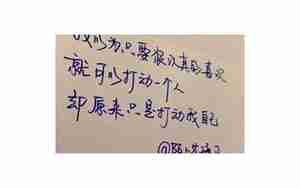 以为只要很认真的喜欢
就可以打动一个人
却原来只是打动我自己